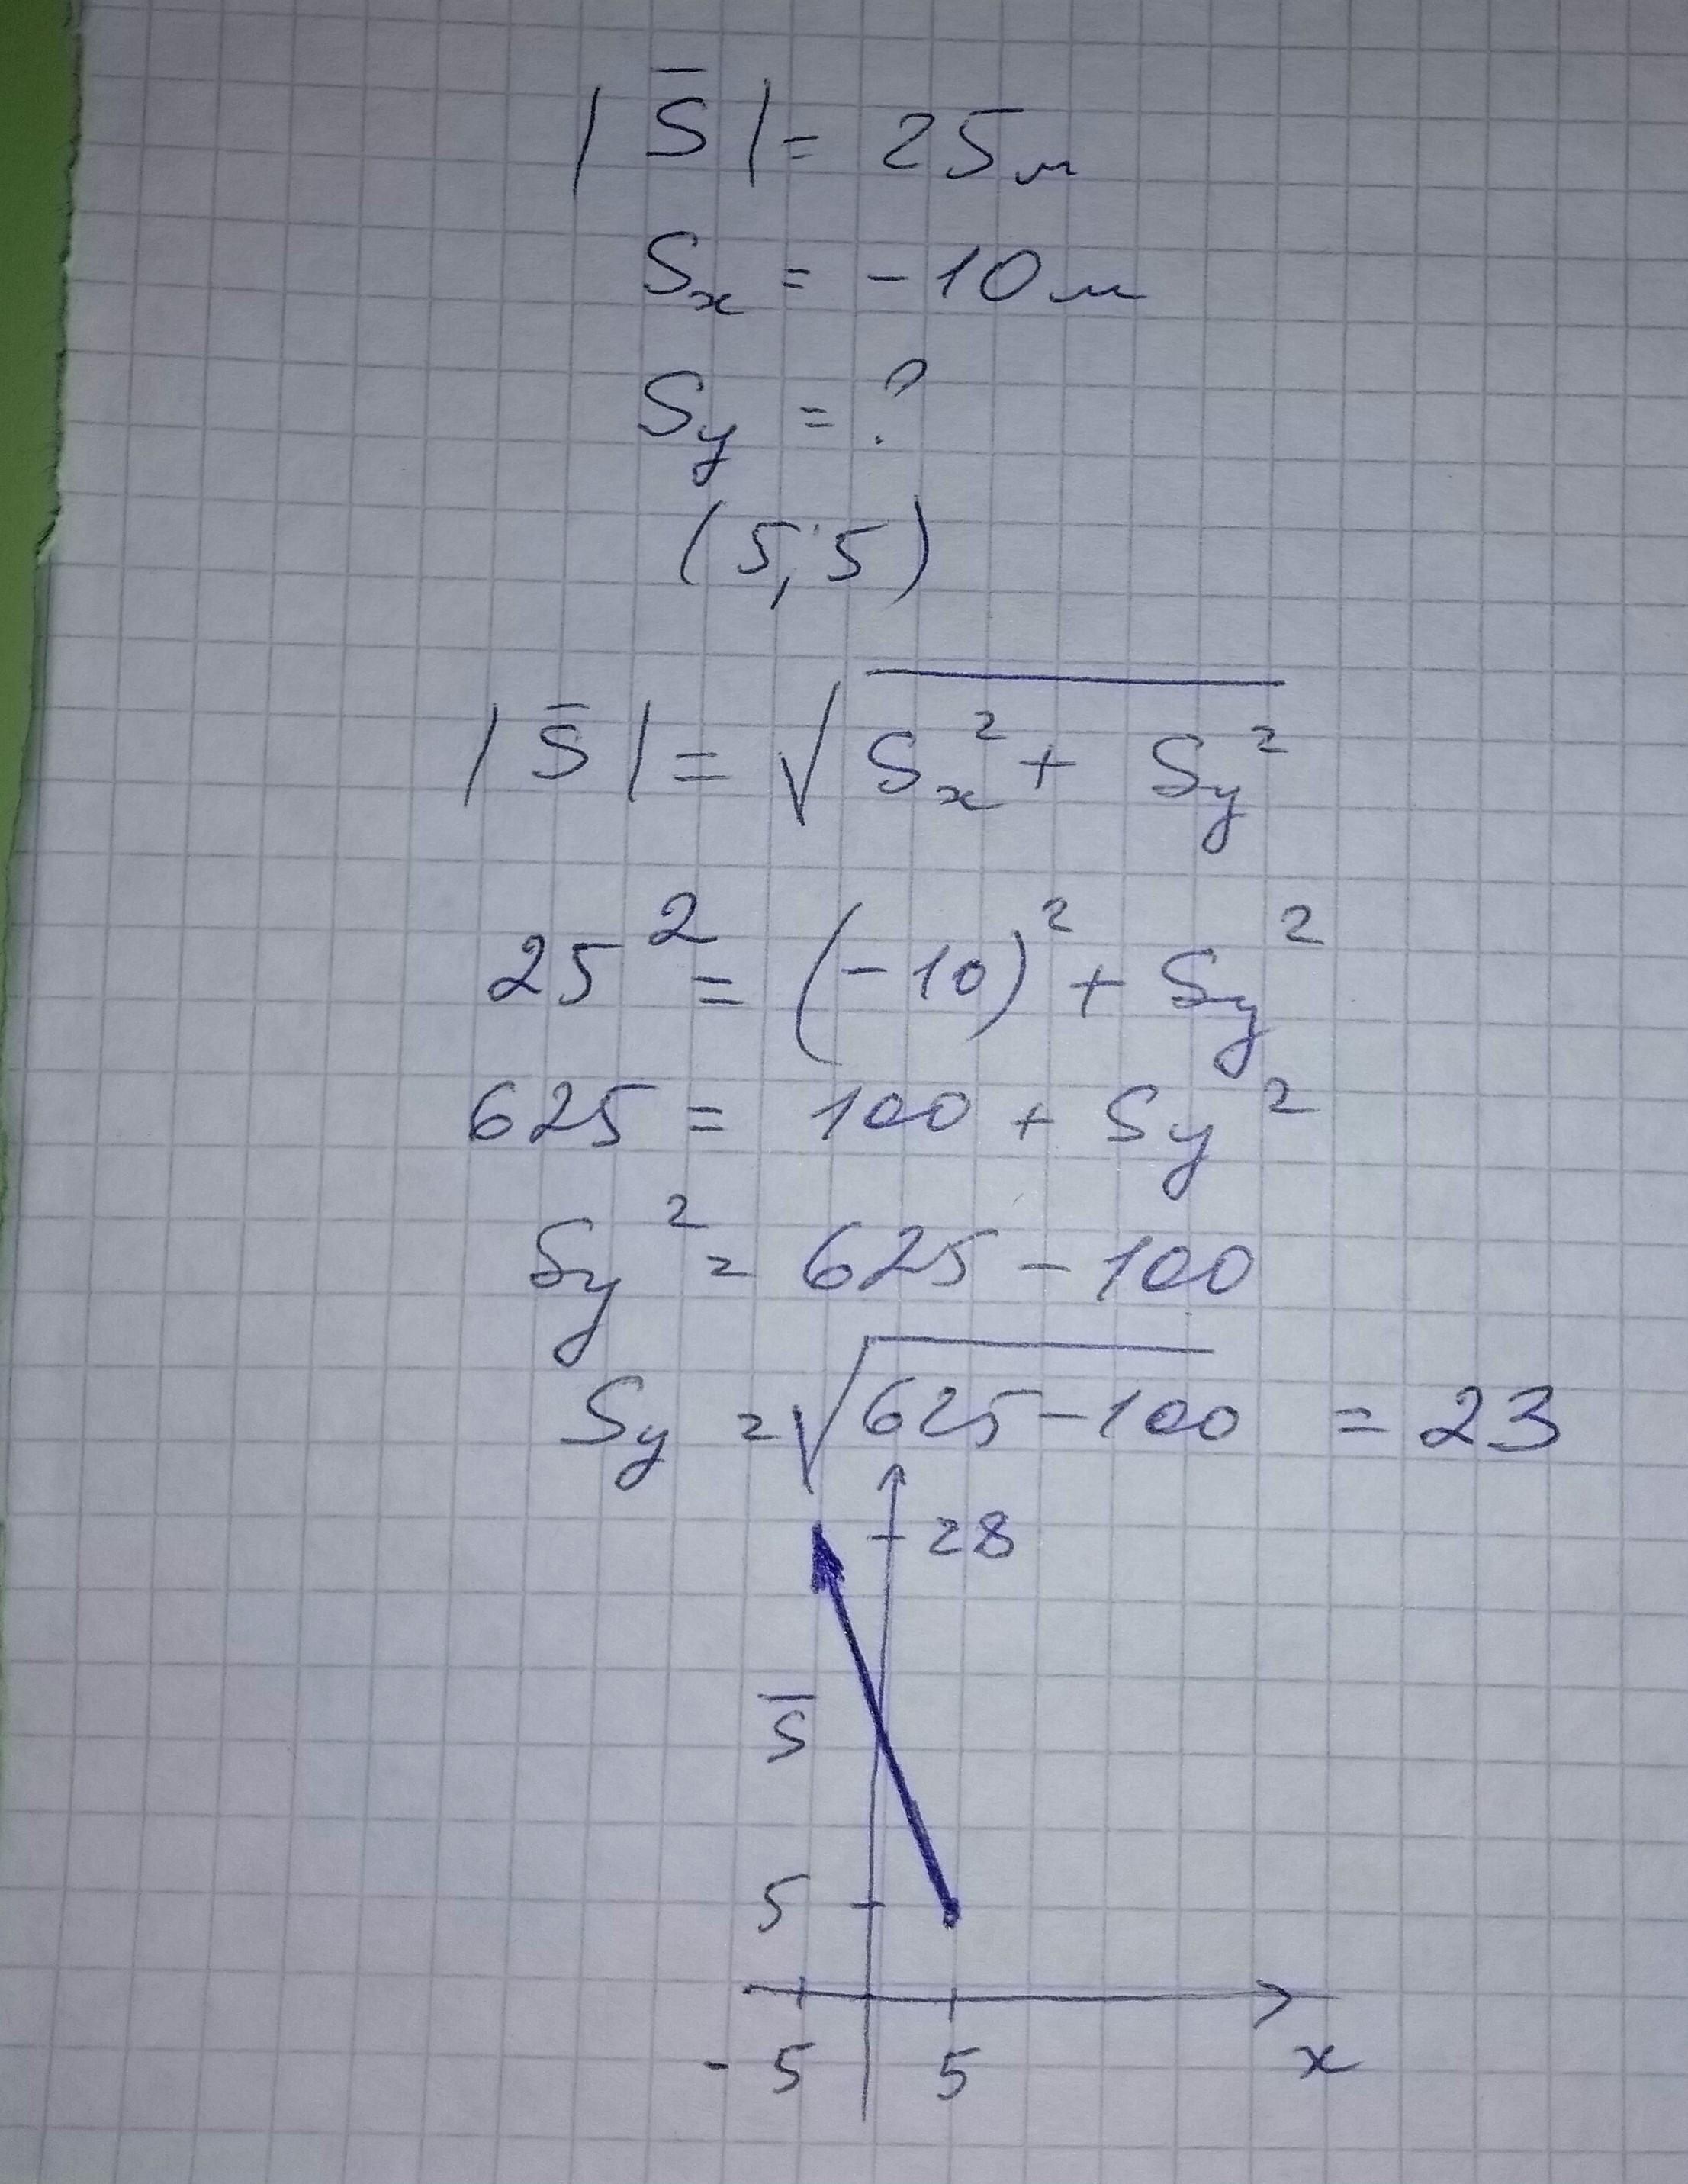 |S̅| = 25м
Sₓ = -10м
Sy = ?
(5; 5)
|S̅| = √(Sₓ² + Sy²)
25² = (-10)² + Sy²
625 = 100 + Sy²
Sy² = 625 - 100
Sy = √(625 - 100) = 23
28
S̅
5
-5 5 x